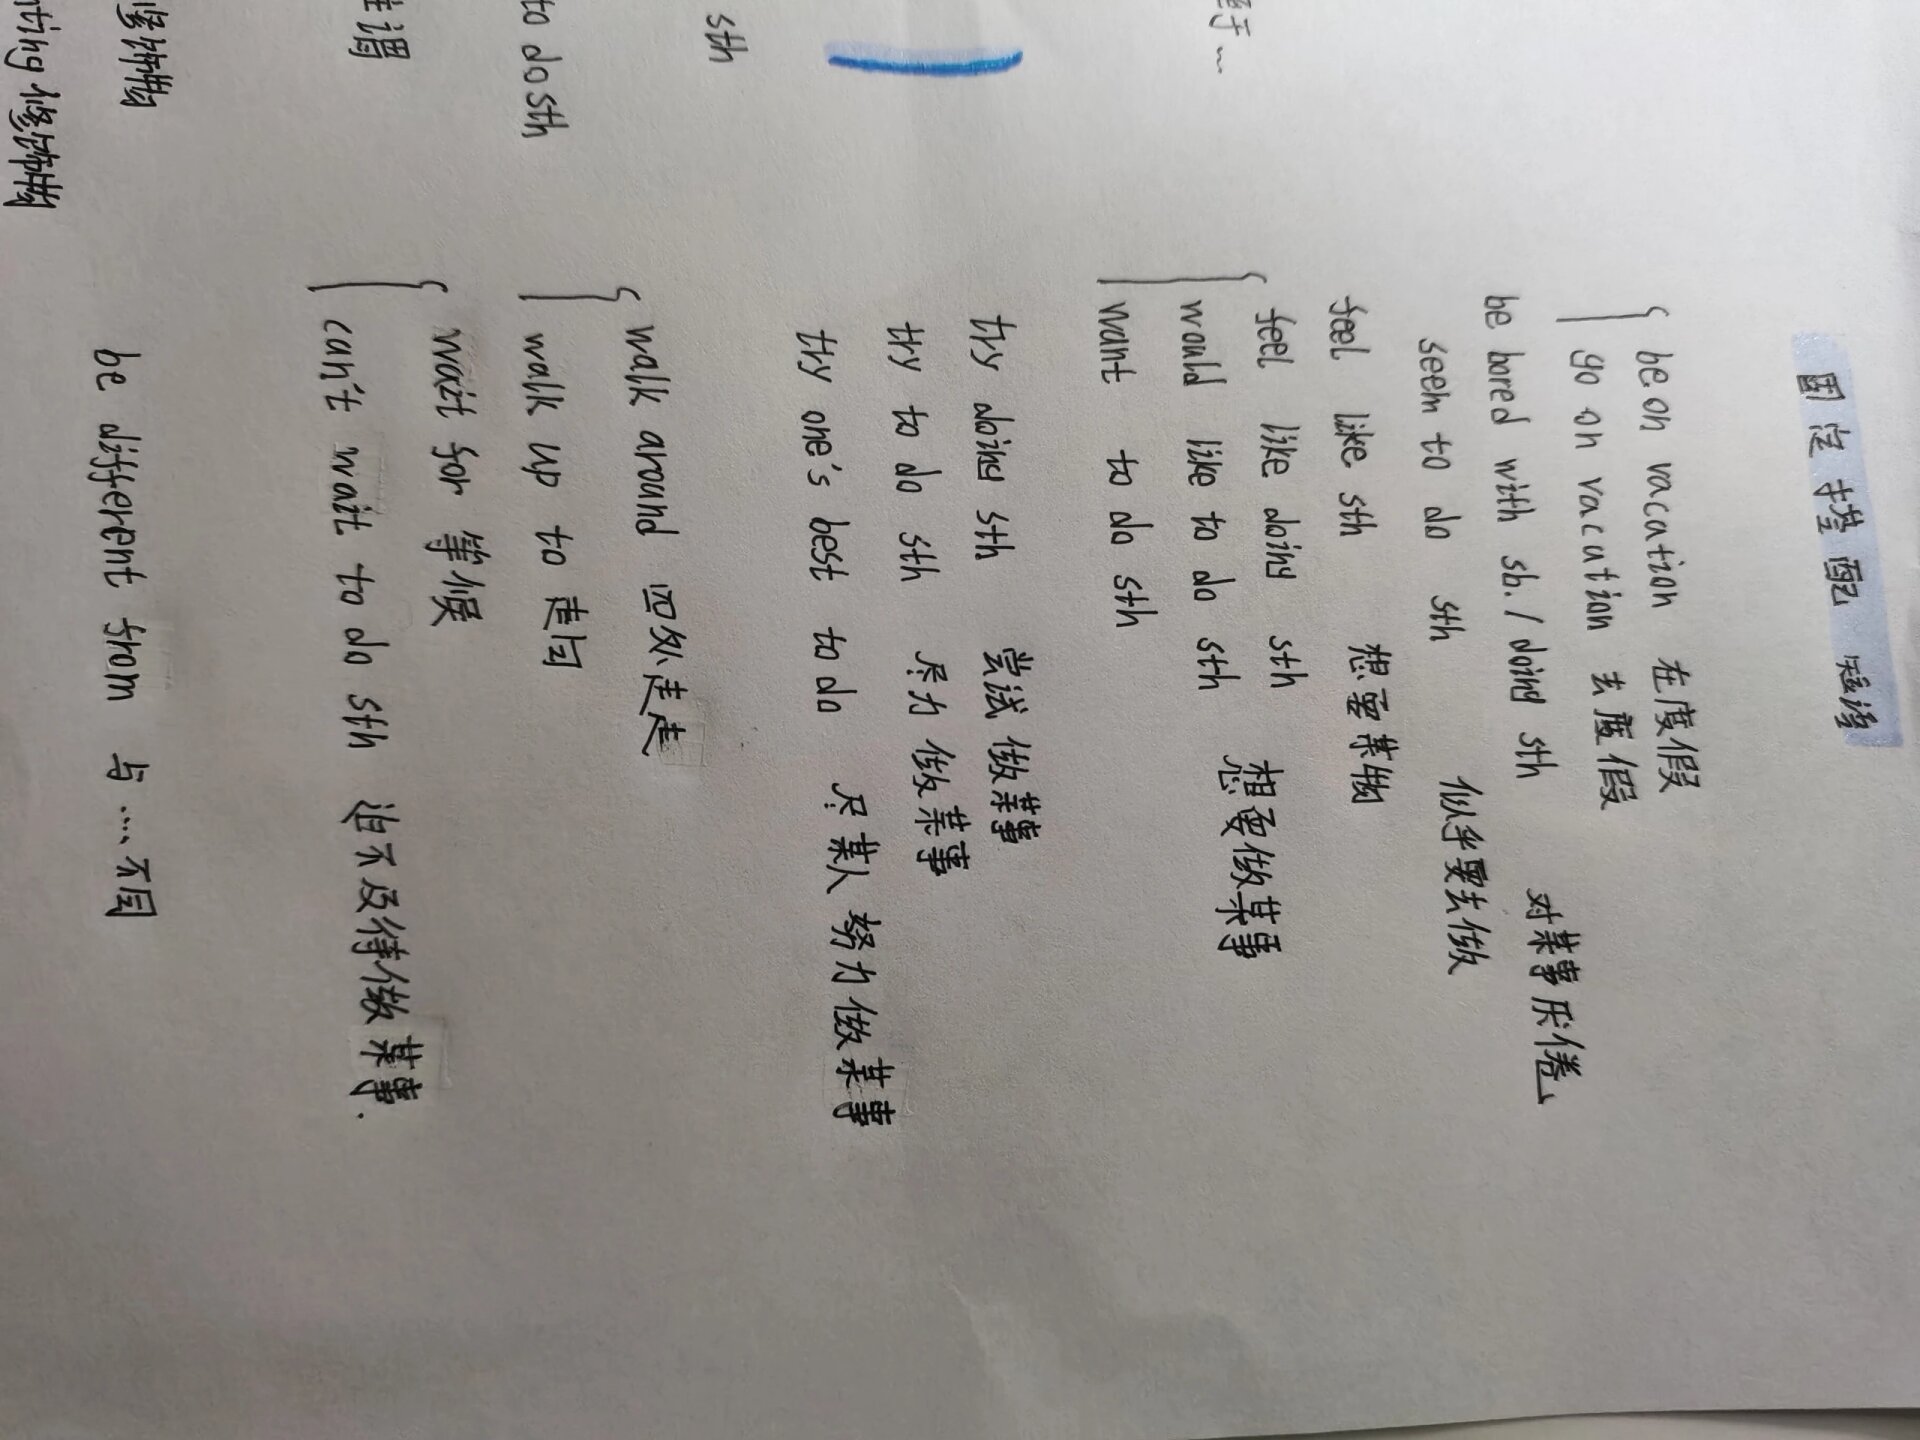 固定搭配 短语
be on vacation 在度假
go on vacation 去度假
be bored with sb. / doing sth 对某事厌倦
seem to do sth 似乎要去做
feel like sth 想要某物
feel like doing sth
would like to do sth 想要做某事
want to do sth
try doing sth 尝试做某事
try to do sth 尽力做某事
try one's best to do 尽某人努力做某事
walk around 四处走走
walk up to 走向
wait for 等候
can't wait to do sth 迫不及待做某事.
be different from 与....不同
于~
sth
to do sth
谓
修饰
ting 修饰